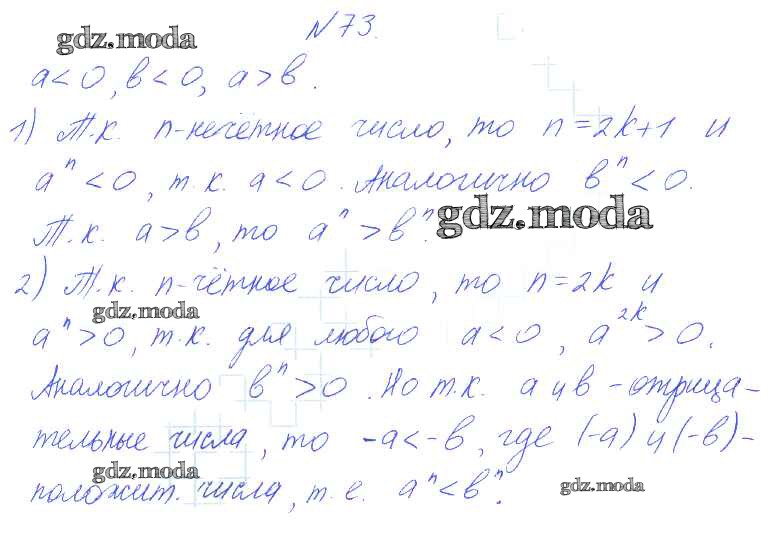 №73.
gdz.moda
a<0, в<0, a>в.
1) Т.к. n-нечётное число, то n=2k+1 и
aⁿ<0, т.к. a<0. Аналогично вⁿ<0.
gdz.moda
Т.к. a>в, то aⁿ>вⁿ.
2) Т.к. n-чётное число, то n=2k и
gdz.moda
aⁿ>0, т.к. для любого a<0, a²ᵏ>0.
Аналогично вⁿ>0. Но т.к. a и в - отрица-
тельные числа, то -a<-в, где (-a) и (-в)-
gdz.moda
положит. числа, т.е. aⁿ<вⁿ.
gdz.moda